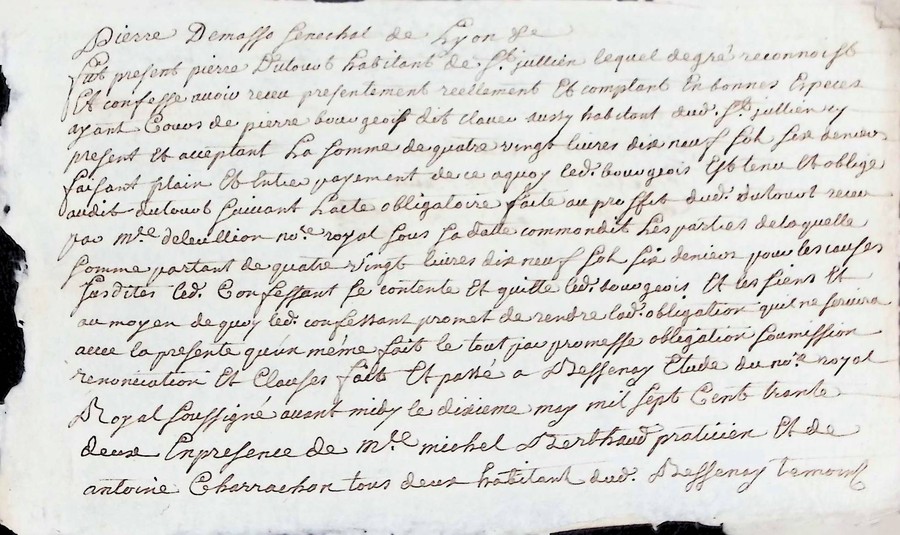 Pierre Demasso Senechal de Lyon &e
fut present pierre Dutout habitant de St. jullien lequel de gré reconnoist
Et confesse avoir receu presentement reellement Et comptant En bonnes Especes
ayant Cours de pierre bourgeois dit claveu aussy habitant dud. St. jullien y
present Et acceptant La somme de quatre vingt livres dix neuf sols six deniers
faisant plain Et Entie payement de ce aquoy led. bourgeois Est tenu Et obligé
audit dutout suivant Lacte obligatoire faite au proffit dud. Dutout receu
par Mre. deleullion nore. royal sous sa datte comme dit Les parties de laquelle
somme partant de quatre vingt livres dix neuf sols six deniers pour les causes
susdites led. Confessant se contente Et quitte led. bourgeois Et les siens Et
au moyen de quoy led. confessant promet de rendre lad. obligation qui ne servira
avec la presente qu'un méme fait le tout par promesse obligation soumission
renonciation Et Clauses fait Et passé a Bessenay Etude du nore. royal
Royal soussigné avant midy le dixieme may mil sept Cent trante
deux En presence de Mre. michel Berthaud praticien Et de
antoine Charrachon tous deux habitant dud. Bessenay temoins